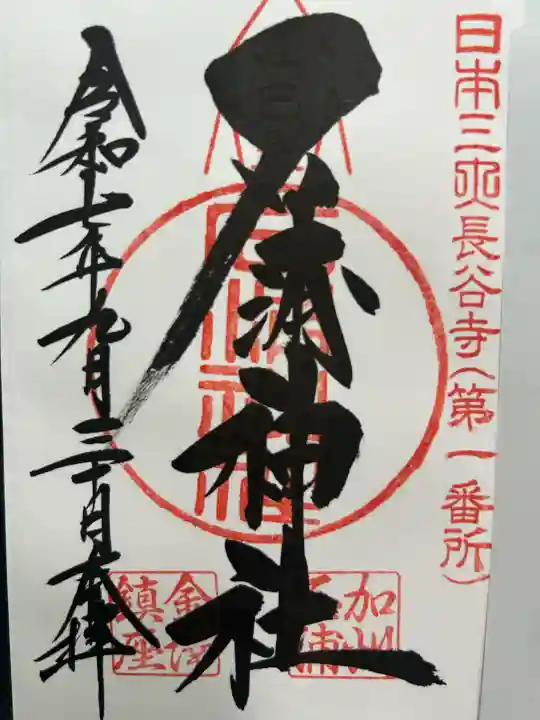 日本三大長谷寺(第一番所)
石浦神社
令和七年九月三十日奉拝
加州
石浦
金沢
鎮座